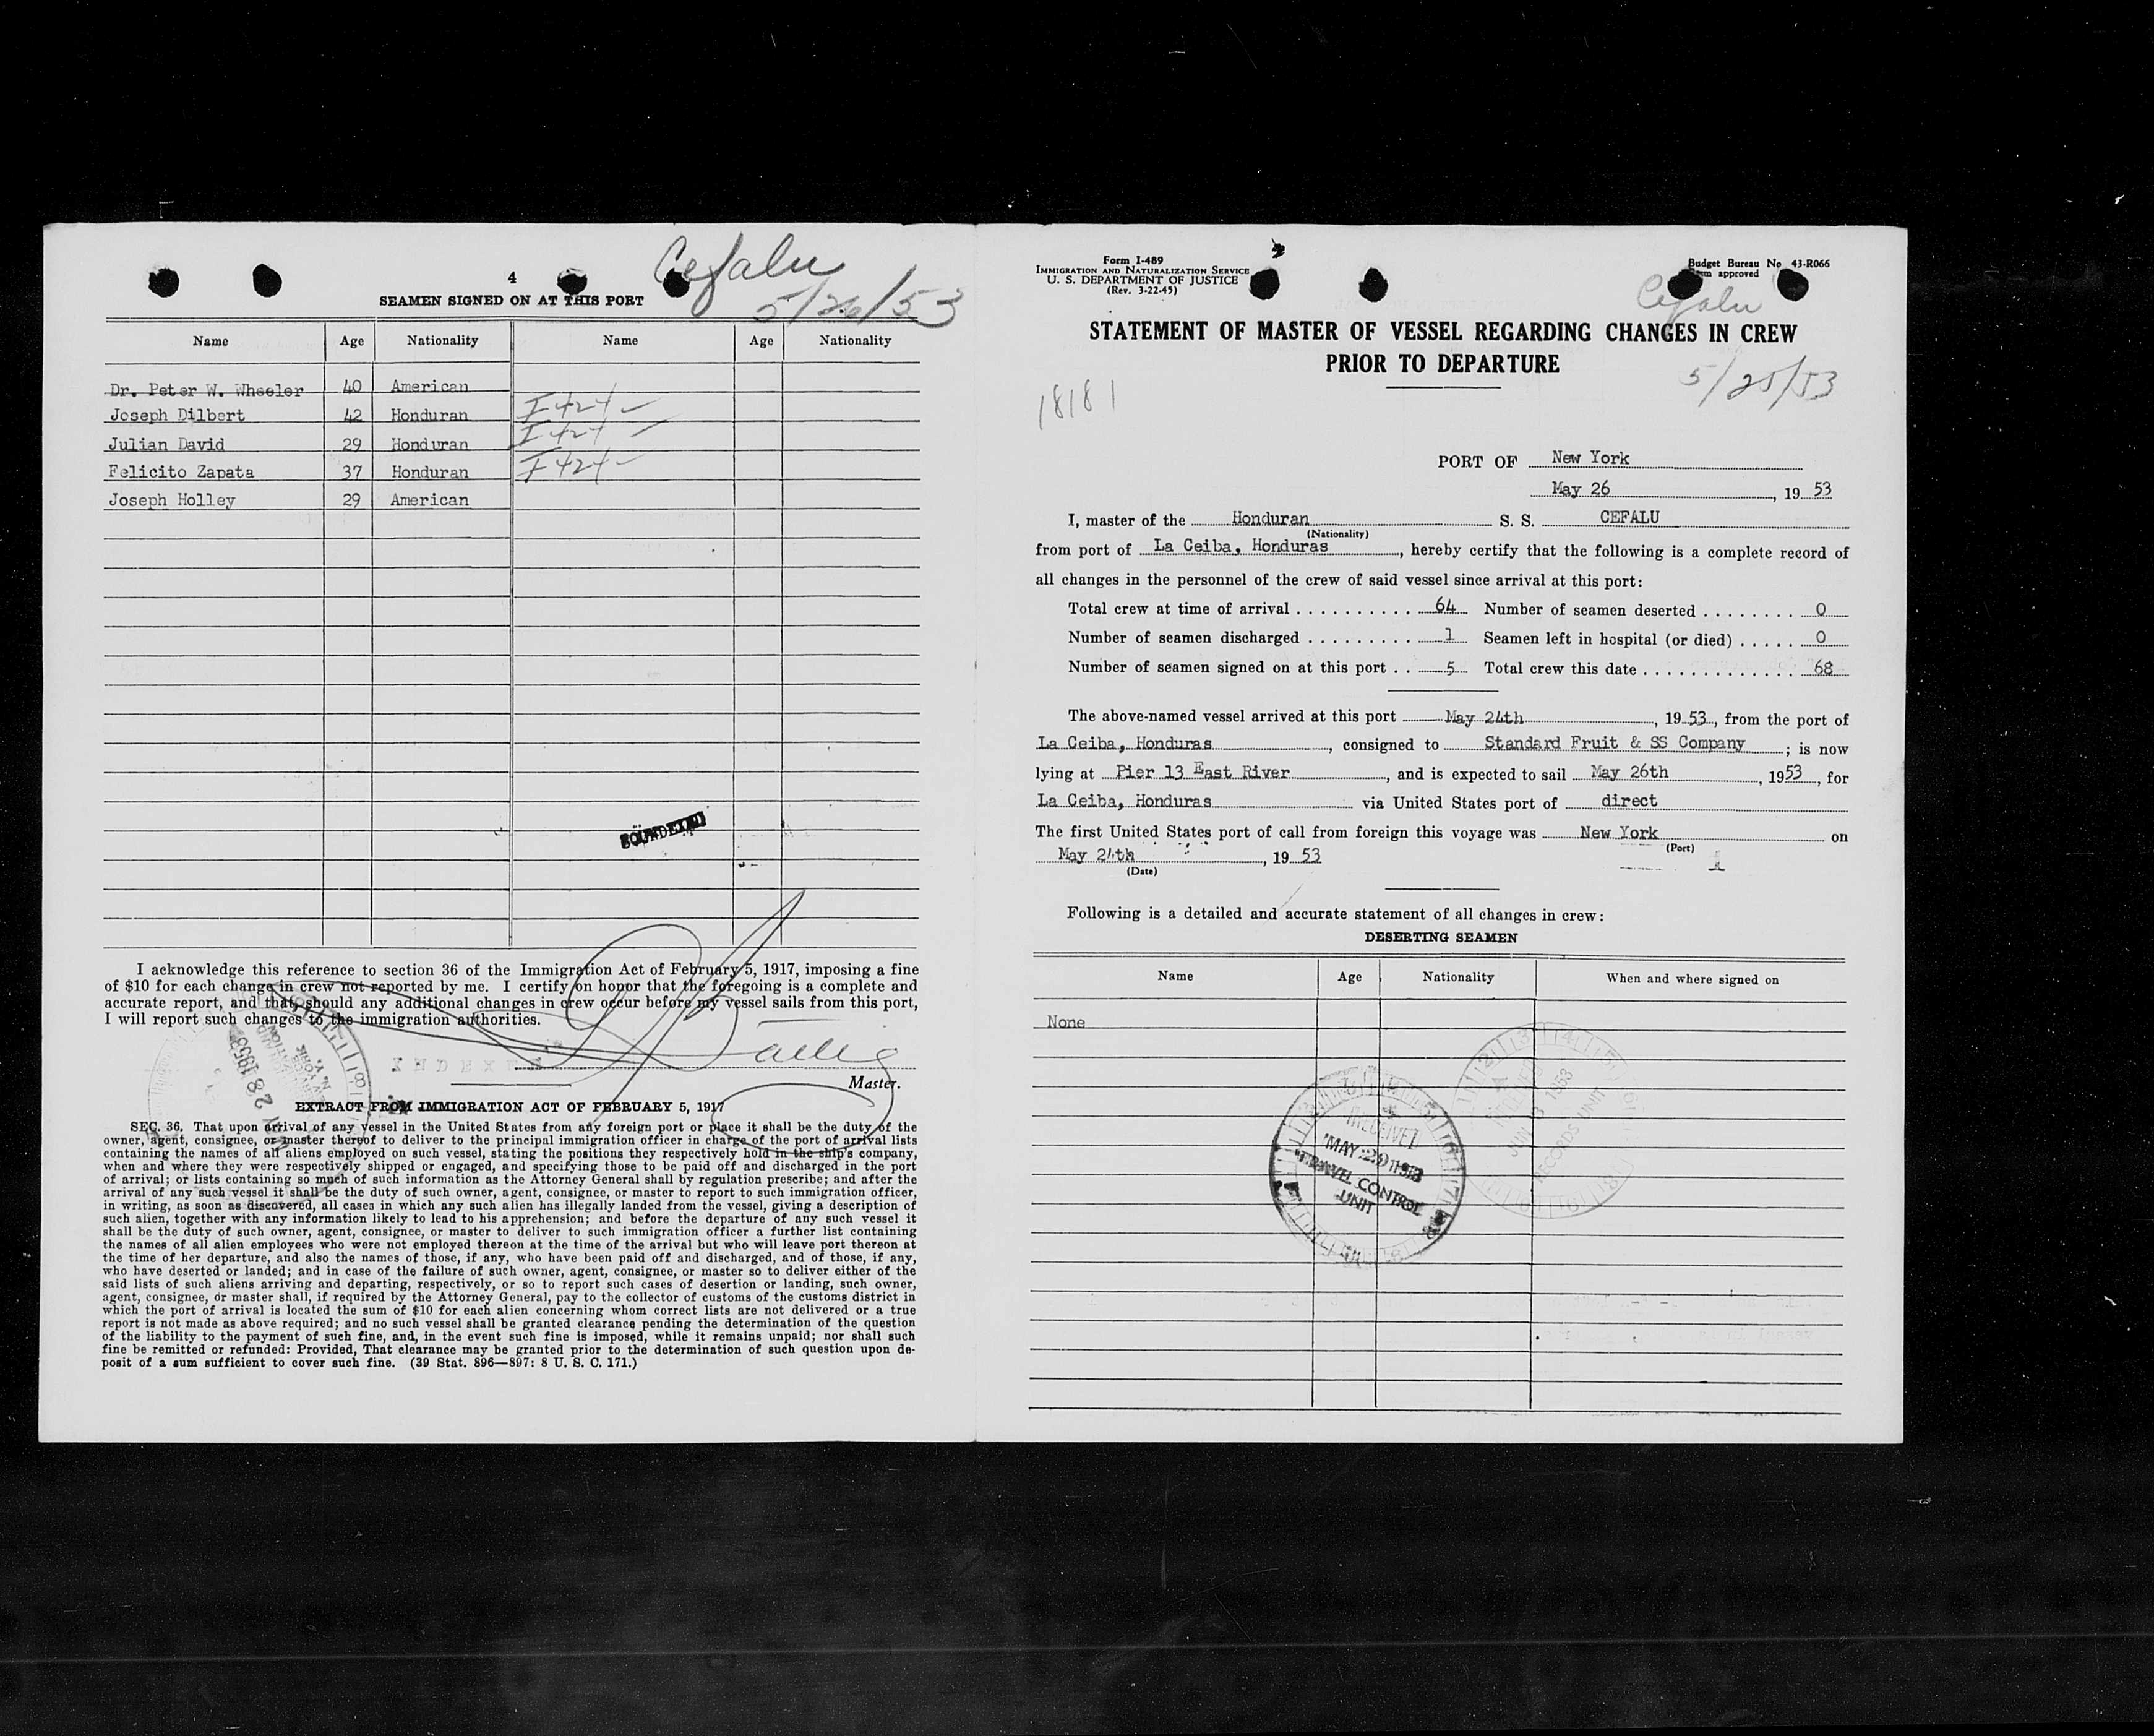 4
Cefalu
5/26/53
SEAMEN SIGNED ON AT THIS PORT
Name Age Nationality Name Age Nationality
Dr. Peter W. Wheeler 40 American
Joseph Dilbert 42 Honduran I 424
Julian David 29 Honduran I 424
Felicito Zapata 37 Honduran I 424
Joseph Holley 29 American
SOUNDEXED
I acknowledge this reference to section 36 of the Immigration Act of February 5, 1917, imposing a fine
of $10 for each change in crew not reported by me. I certify on honor that the foregoing is a complete and
accurate report, and that, should any additional changes in crew occur before my vessel sails from this port,
I will report such changes to the immigration authorities.
INDEXED
Master.
EXTRACT FROM IMMIGRATION ACT OF FEBRUARY 5, 1917
SEC. 36. That upon arrival of any vessel in the United States from any foreign port or place it shall be the duty of the
owner, agent, consignee, or master thereof to deliver to the principal immigration officer in charge of the port of arrival lists
containing the names of all aliens employed on such vessel, stating the positions they respectively hold in the ship's company,
when and where they were respectively shipped or engaged, and specifying those to be paid off and discharged in the port
of arrival; or lists containing so much of such information as the Attorney General shall by regulation prescribe; and after the
arrival of any such vessel it shall be the duty of such owner, agent, consignee, or master to report to such immigration officer,
in writing, as soon as discovered, all cases in which any such alien has illegally landed from the vessel, giving a description of
such alien, together with any information likely to lead to his apprehension; and before the departure of any such vessel it
shall be the duty of such owner, agent, consignee, or master to deliver to such immigration officer a further list containing
the names of all alien employees who were not employed thereon at the time of the arrival but who will leave port thereon at
the time of her departure, and also the names of those, if any, who have been paid off and discharged, and of those, if any,
who have deserted or landed; and in case of the failure of such owner, agent, consignee, or master so to deliver either of the
said lists of such aliens arriving and departing, respectively, or so to report such cases of desertion or landing, such owner,
agent, consignee, or master shall, if required by the Attorney General, pay to the collector of customs of the customs district in
which the port of arrival is located the sum of $10 for each alien concerning whom correct lists are not delivered or a true
report is not made as above required; and no such vessel shall be granted clearance pending the determination of the question
of the liability to the payment of such fine, and, in the event such fine is imposed, while it remains unpaid; nor shall such
fine be remitted or refunded: Provided, That clearance may be granted prior to the determination of such question upon de-
posit of a sum sufficient to cover such fine. (39 Stat. 896—897; 8 U. S. C. 171.)
Form I-489
IMMIGRATION AND NATURALIZATION SERVICE
U. S. DEPARTMENT OF JUSTICE
(Rev. 3-22-45)
Budget Bureau No 43-R066
approved
Cefalu
STATEMENT OF MASTER OF VESSEL REGARDING CHANGES IN CREW
PRIOR TO DEPARTURE
5/25/53
18181
PORT OF New York
May 26, 1953
I, master of the Honduran S. S. CEFALU
(Nationality)
from port of La Ceiba, Honduras, hereby certify that the following is a complete record of
all changes in the personnel of the crew of said vessel since arrival at this port:
Total crew at time of arrival .......... 64 Number of seamen deserted ........ 0
Number of seamen discharged ......... 1 Seamen left in hospital (or died) ..... 0
Number of seamen signed on at this port .. 5 Total crew this date .............. 68
The above-named vessel arrived at this port May 24th, 1953, from the port of
La Ceiba, Honduras, consigned to Standard Fruit & SS Company; is now
lying at Pier 13 East River, and is expected to sail May 26th, 1953, for
La Ceiba, Honduras via United States port of direct
The first United States port of call from foreign this voyage was New York on
(Port)
May 24th, 1953
(Date)
1
Following is a detailed and accurate statement of all changes in crew:
DESERTING SEAMEN
Name Age Nationality When and where signed on
None
RECEIVED
MAY 29 1953
TRAVEL CONTROL
UNIT
RECEIVED
JUN 3 1953
RECORDS UNIT